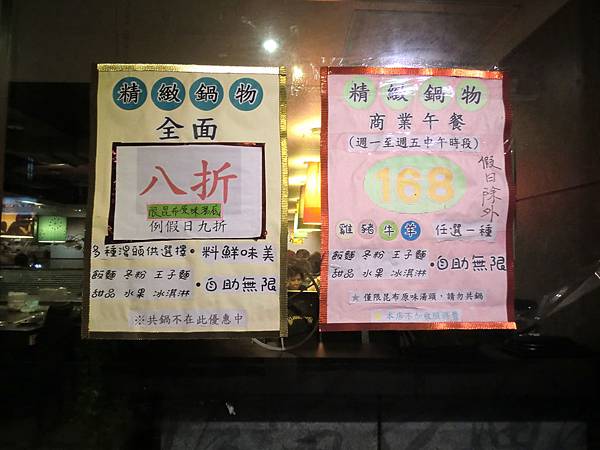 精緻鍋物
全面
八折
限昆布原味湯底
例假日九折
多種湯頭供選擇・料鮮味美
飯麵 冬粉 王子麵
甜品 水果 冰淇淋
・自助無限
※共鍋不在此優惠中
精緻鍋物
商業午餐
(週一至週五中午時段)
168
假日除外
雞豬牛羊 任選一種
飯麵 冬粉 王子麵
甜品 水果 冰淇淋
・自助無限
★僅限昆布原味湯頭，請勿共鍋
本店不加收服務費